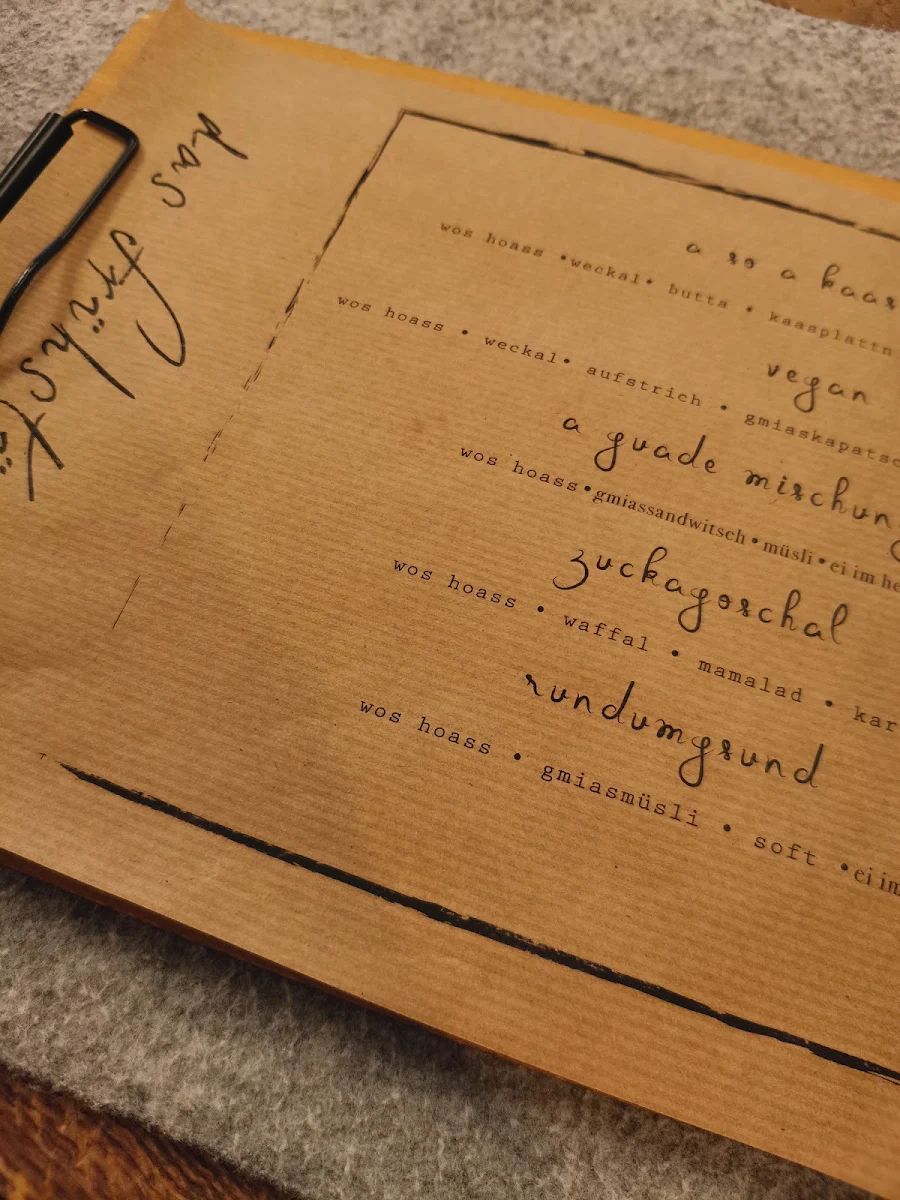 das frühst
a so a kaas
wos hoass • weckal • butta • kaasplattn
vegan
wos hoass • weckal • aufstrich • gmiaskapatsc
a guade mischung
wos hoass • gmiassandwitsch • müsli • ei im he
zuckagoschal
wos hoass • waffal • mamalad • kar
rundumgsund
wos hoass • gmiasmüsli • soft • ei im